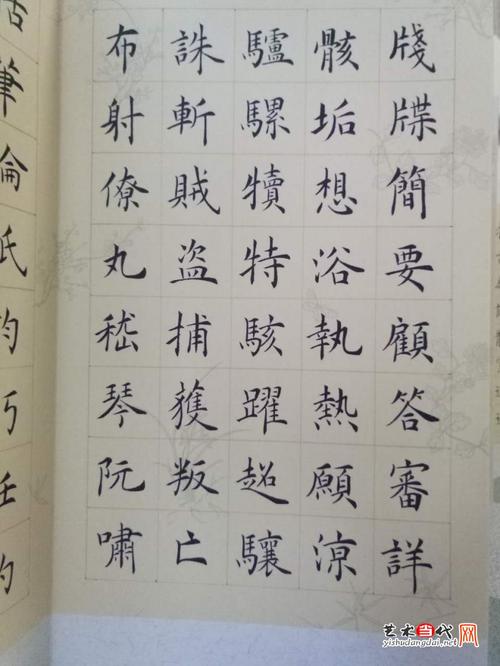 牋牒簡要顧答審詳
骸垢想浴執熱願涼
驢騾犢特駭躍超驤
誅斬賊盜捕獲叛亡
布射僚丸嵇琴阮嘯
筆
艺术当代网
yishudangdai.net